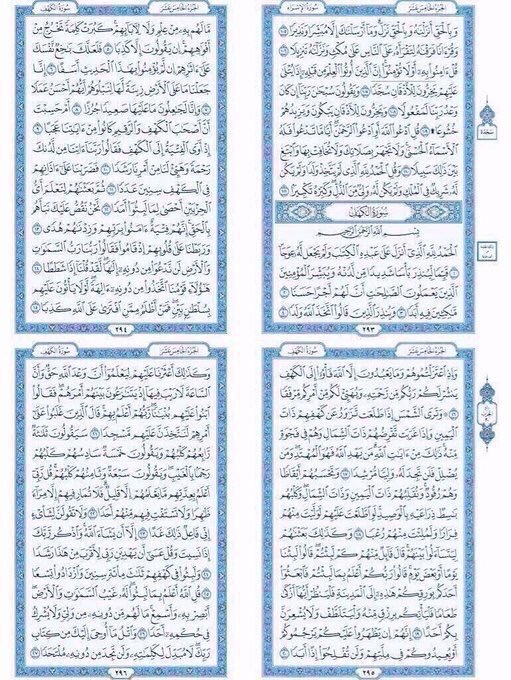 الجزء الخامس عشر
سورة الإسراء
وبالحق أنزلنه وبالحق نزل وما أرسلنك إلا مبشرا ونذيرا ١٠٥
وقرءانا فرقنه لتقرأه على الناس على مكث ونزلنه تنزيلا ١٠٦
قل ءامنوا به أو لا تؤمنوا إن الذين أوتوا العلم من قبله إذا يتلى
عليهم يخرون للأذقان سجدا ١٠٧ ويقولون سبحن ربنا إن كان
وعد ربنا لمفعولا ١٠٨ ويخرون للأذقان يبكون ويزيدهم
خشوعا ۩ ١٠٩ قل ادعوا الله أو ادعوا الرحمن أيا ما تدعوا فله
الأسماء الحسنى ولا تجهر بصلاتك ولا تخافت بها وابتغ
بين ذلك سبيلا ١١٠ وقل الحمد لله الذي لم يتخذ ولدا ولم يكن
له شريك في الملك ولم يكن له ولي من الذل وكبره تكبيرا ١١١
سجدة
سورة الكهف
بسم الله الرحمن الرحيم
الحمد لله الذي أنزل على عبده الكتب ولم يجعل له عوجا ١
قيما لينذر بأسا شديدا من لدنه ويبشر المؤمنين
الذين يعملون الصلحت أن لهم أجرا حسنا ٢
مكثين فيه أبدا ٣ وينذر الذين قالوا اتخذ الله ولدا ٤
٢٩٣
الجزء الخامس عشر
سورة الكهف
ما لهم به من علم ولا لءابائهم كبرت كلمة تخرج من
أفوههم إن يقولون إلا كذبا ٥ فلعلك بخع نفسك
على ءاثرهم إن لم يؤمنوا بهذا الحديث أسفا ٦ إنا
جعلنا ما على الأرض زينة لها لنبلوهم أيهم أحسن عملا ٧
وإنا لجعلون ما عليها صعيدا جرزا ٨ أم حسبت
أن أصحب الكهف والرقيم كانوا من ءايتنا عجبا ٩
إذ أوى الفتية إلى الكهف فقالوا ربنا ءاتنا من لدنك
رحمة وهيئ لنا من أمرنا رشدا ١٠ فضربنا على ءاذانهم
في الكهف سنين عددا ١١ ثم بعثنهم لنعلم أي
الحزبين أحصى لما لبثوا أمدا ١٢ نحن نقص عليك نبأهم
بالحق إنهم فتية ءامنوا بربهم وزدنهم هدى ١٣
وربطنا على قلوبهم إذ قاموا فقالوا ربنا رب السموت
والأرض لن ندعوا من دونه إلها لقد قلنا إذا شططا ١٤
هؤلاء قومنا اتخذوا من دونه ءالهة لولا يأتون عليهم
بسلطن بين فمن أظلم ممن افترى على الله كذبا ١٥
٢٩٤
الجزء الخامس عشر
سورة الكهف
وإذ اعتزلتموهم وما يعبدون إلا الله فأوا إلى الكهف
ينشر لكم ربكم من رحمته ويهيئ لكم من أمركم مرفقا
١٦ وترى الشمس إذا طلعت تزور عن كهفهم ذات
اليمين وإذا غربت تقرضهم ذات الشمال وهم في فجوة
منه ذلك من ءايت الله من يهد الله فهو المهتد ومن
يضلل فلن تجد له وليا مرشدا ١٧ وتحسبهم أيقاظا
وهم رقود ونقلبهم ذات اليمين وذات الشمال وكلبهم
بسط ذراعيه بالوصيد لو اطلعت عليهم لوليت منهم
فرارا ولملئت منهم رعبا ١٨ وكذلك بعثنهم
ليتساءلوا بينهم قال قائل منهم كم لبثتم قالوا لبثنا
يوما أو بعض يوم قالوا ربكم أعلم بما لبثتم فابعثوا
أحدكم بورقكم هذه إلى المدينة فلينظر أيها أزكى
طعاما فليأتكم برزق منه وليتلطف ولا يشعرن
بكم أحدا ١٩ إنهم إن يظهروا عليكم يرجموكم
أو يعيدوكم في ملتهم ولن تفلحوا إذا أبدا ٢٠
٢٩٥
الجزء الخامس عشر
سورة الكهف
وكذلك أعثرنا عليهم ليعلموا أن وعد الله حق وأن
الساعة لا ريب فيها إذ يتنزعون بينهم أمرهم فقالوا
ابنوا عليهم بنينا ربهم أعلم بهم قال الذين غلبوا على
أمرهم لنتخذن عليهم مسجدا ٢١ سيقولون ثلثة
رابعهم كلبهم ويقولون خمسة سادسهم كلبهم
رجما بالغيب ويقولون سبعة وثامنهم كلبهم قل ربي
أعلم بعدتهم ما يعلمهم إلا قليل فلا تمار فيهم إلا مراء
ظهرا ولا تستفت فيهم منهم أحدا ٢٢ ولا تقولن لشايء
إني فاعل ذلك غدا ٢٣ إلا أن يشاء الله واذكر ربك
إذا نسيت وقل عسى أن يهدين ربي لأقرب من هذا رشدا
٢٤ ولبثوا في كهفهم ثلث مائة سنين وازدادوا تسعا
٢٥ قل الله أعلم بما لبثوا له غيب السموت والأرض
أبصر به وأسمع ما لهم من دونه من ولي ولا يشرك
في حكمه أحدا ٢٦ واتل ما أوحي إليك من كتاب
ربك لا مبدل لكلمته ولن تجد من دونه ملتحدا ٢٧
٢٩٦